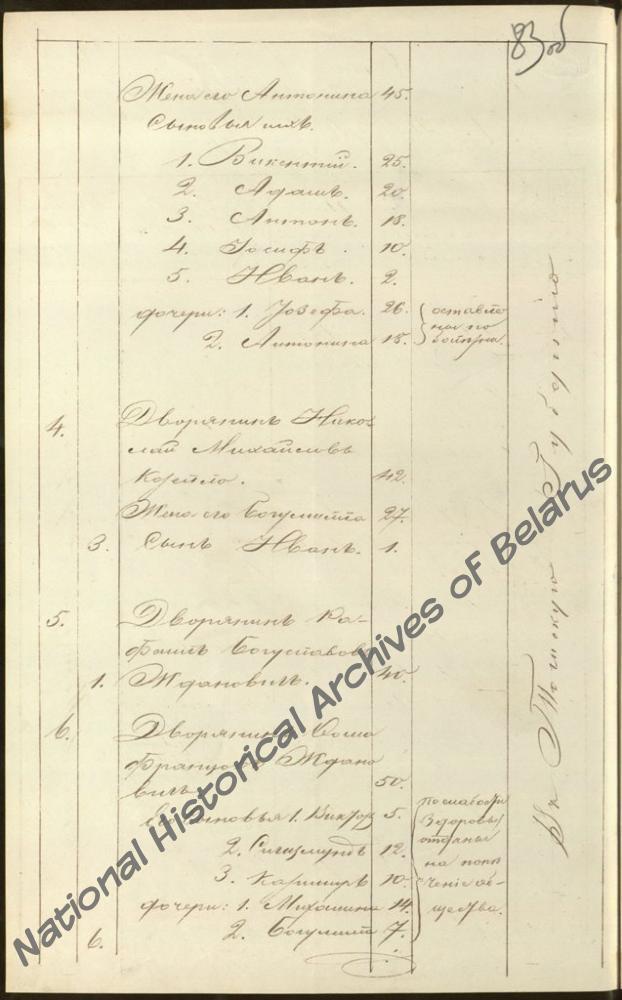 83 об
Жена его Антонина 45.
Сыновья ихъ.
1. Викентій. 25.
2. Адамъ. 20.
3. Антонъ. 18.
4. Іосифъ. 10.
5. Иванъ. 2.
дочери: 1. Юзефа. 26. оставле
ны по
2. Антонина 15.
4. Дворянинъ Нико
лай Михайловъ
42.
Жена его Богумилла 27.
3. Сынъ Иванъ. 1.
5. Дворянинъ Ра-
фаилъ Богуславовъ
1. Ждановичъ. 40.
6. Дворянинъ Ѳома
Францовъ Ждано
вичъ 50.
Его сыновья 1. Викторъ 5. по слабости
здоровья
2. Сигизмундъ 12. отданы
на попе
3. Казимиръ 10. ченіе об-
дочери: 1. Михалина 14. щества.
6. 2. Богумила 7.
Въ Томскую Губернію
National Historical Archives of Belarus